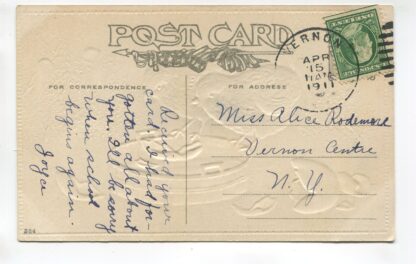 POST CARD
FOR CORRESPONDENCE
FOR ADDRESS
VERNON
APR
15
11AM
1911
Rec'd your
card. I had for-
gotten all about
you. I'll be sorry
when school
begins again.
Joyce
Miss Alice Rodemore
Vernon Centre
N.Y.